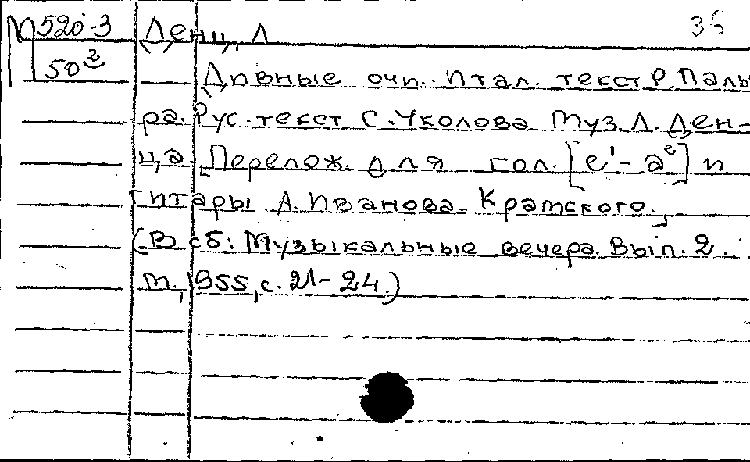 М520-3 Денц, Л 36
50³ Дивные очи. Итал. текст Р. Паль
ра. Рус. текст С. Уколова Муз. Л. Ден-
ца. Перелож. для гол. [e'-a²] и
гитары А. Иванова-Крамского.
(В сб: Музыкальные вечера. Вып. 2.
М., 1955, с. 21-24.)